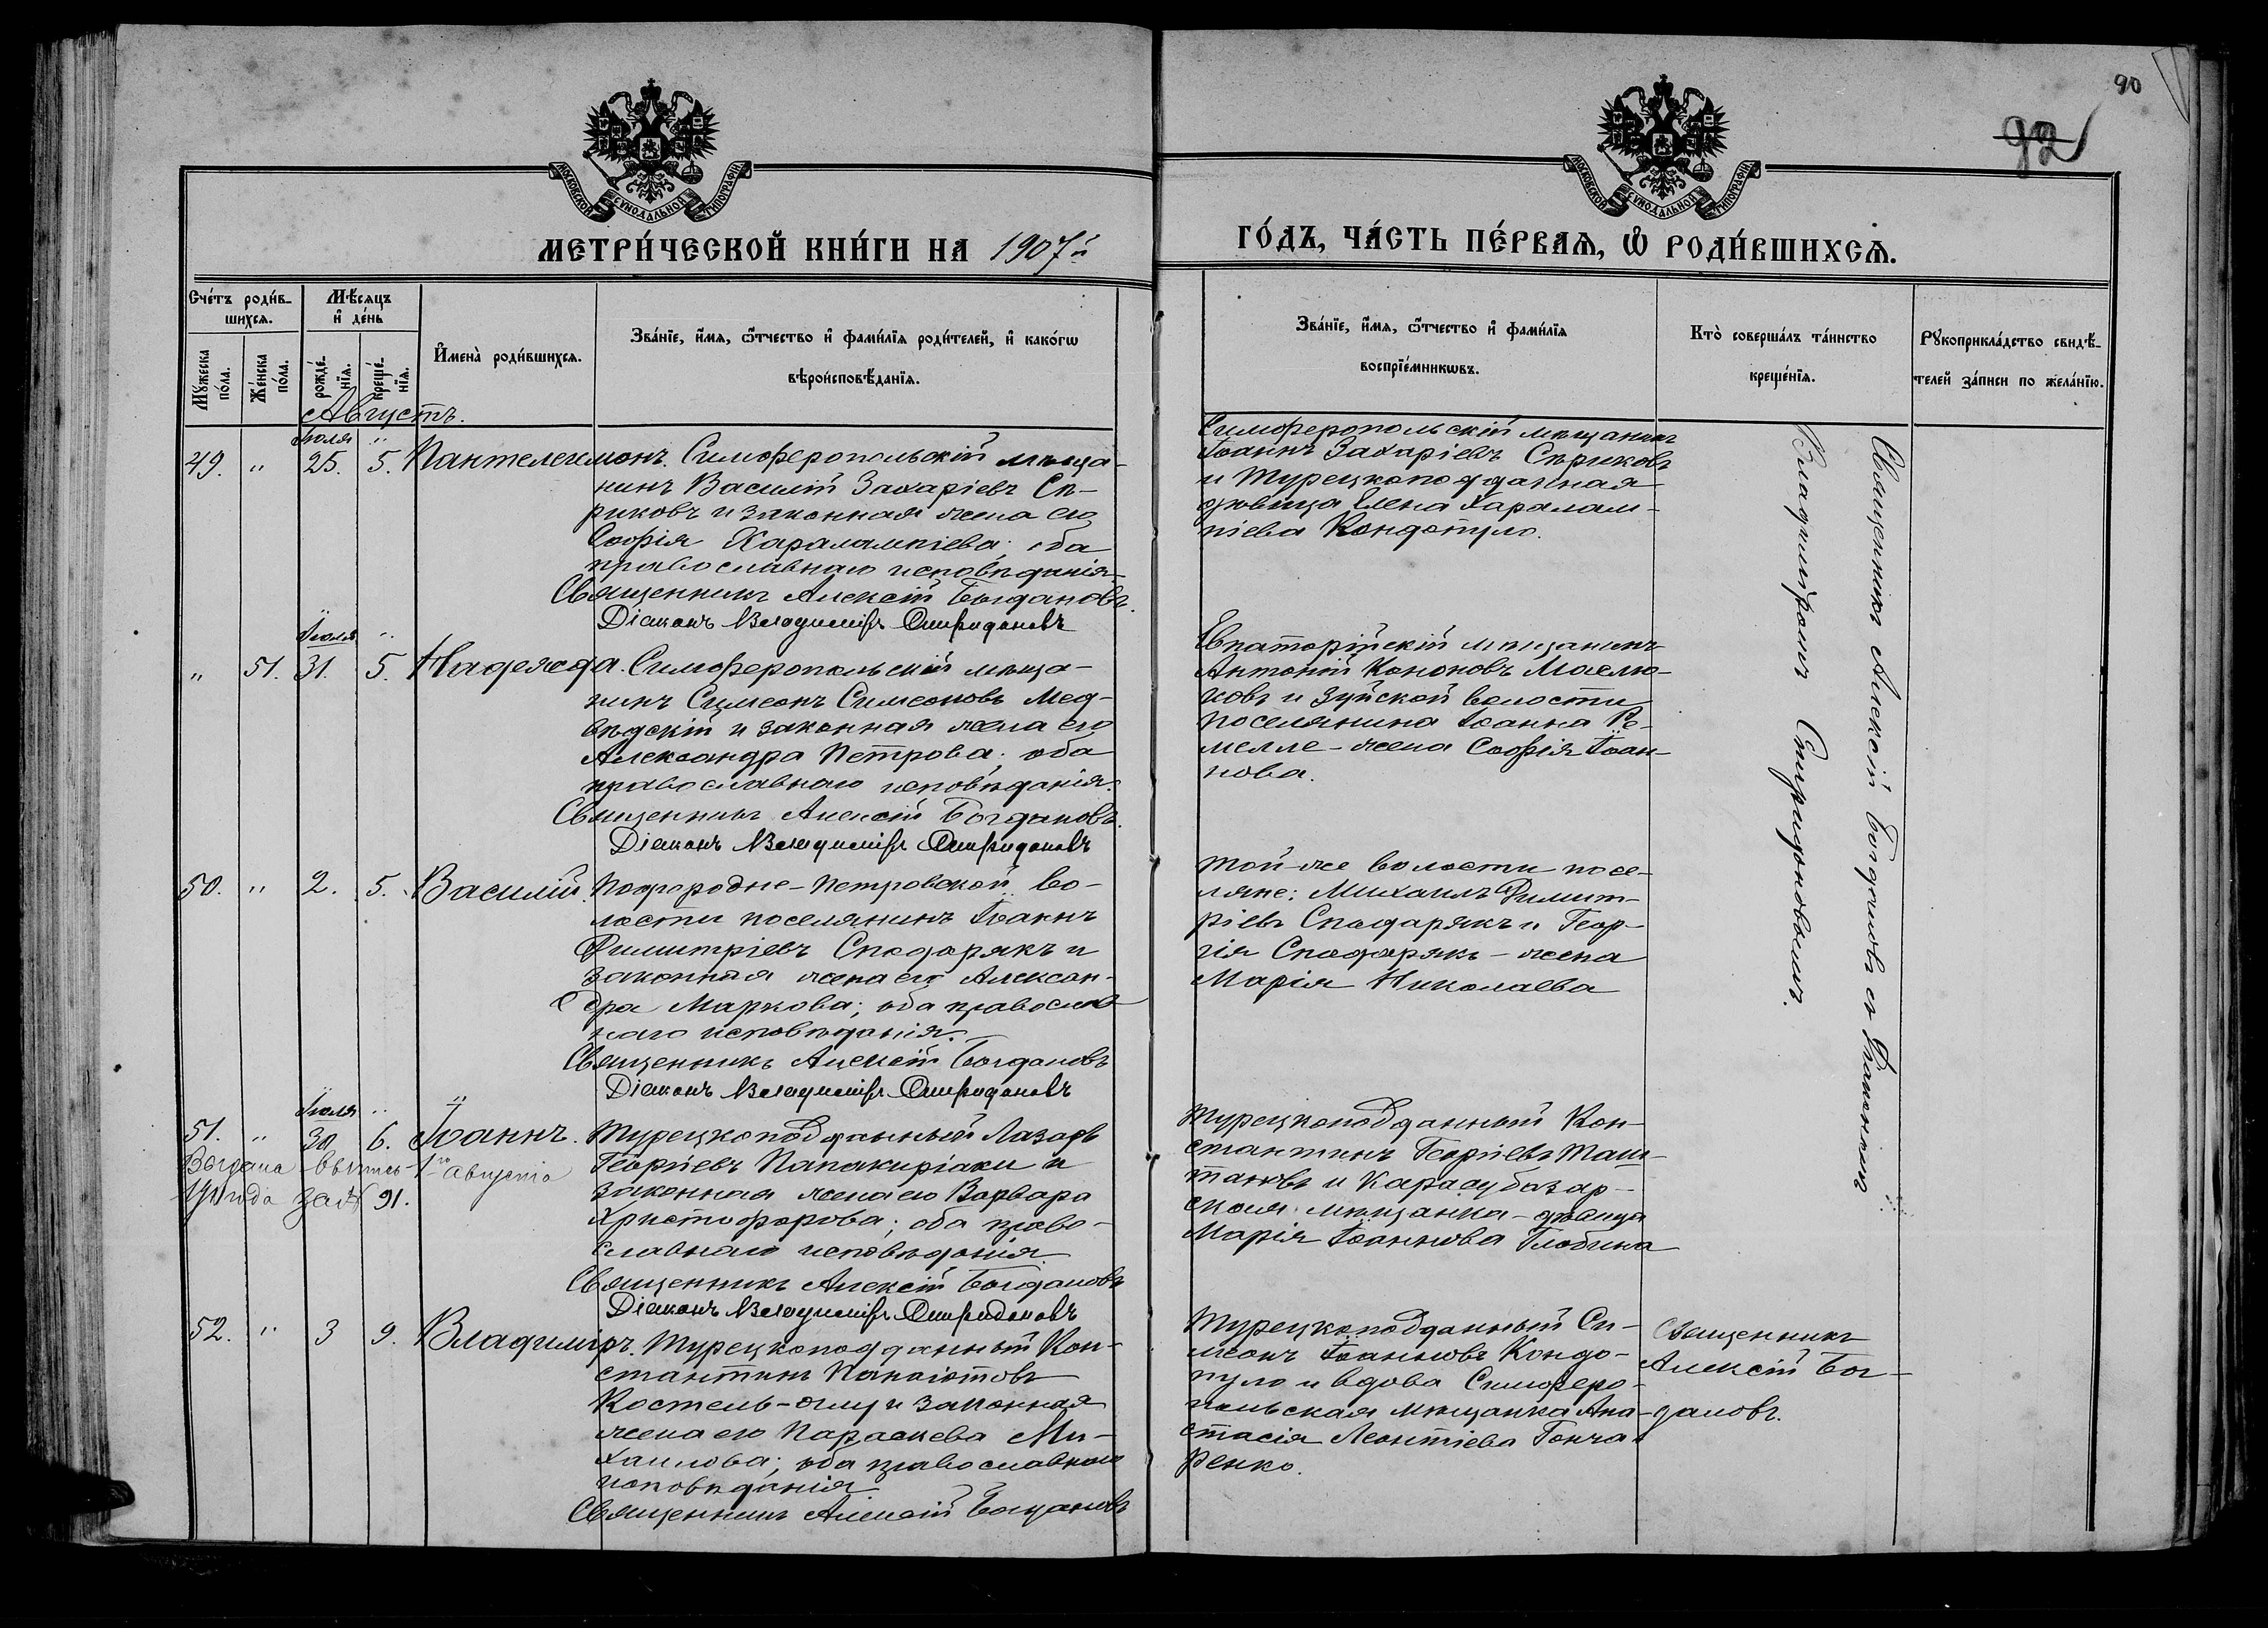 90
92
МОСКОВСКОЙ СѴНОДАЛЬНОЙ ТИПОГРАФІИ
МОСКОВСКОЙ СѴНОДАЛЬНОЙ ТИПОГРАФІИ
МЕТРИ́ЧЕСКОЙ КНИ́ГИ НА 1907 й
ГО́ДЪ, ЧА́СТЬ ПЕ́РВАѦ, Ѡ҆ РОДИ́ВШИХСѦ.
Сче́тъ роди́в-
шихсѧ.
Мѣ́сѧцъ
и҆ де́нь
Мꙋ́жеска по́ла.
Же́нска по́ла.
рожде́-
нїѧ.
креще́-
нїѧ.
И҆мена̀ роди́вшихсѧ.
Зва́нїе, и҆́мѧ, ѻ҆́тчество и҆ фами́лїѧ роди́телей, и҆ како́гѡ
вѣроисповѣ́данїѧ.
Зва́нїе, и҆́мѧ, ѻ҆́тчество и҆ фами́лїѧ
воспрїе́мникѡвъ.
Кто̀ соверша́лъ та́инство
креще́нїѧ.
Рꙋкоприкла́дство свидѣ́-
телей за́писи по жела́нїю.
Августъ.
Іюля "
49. " 25. 5. Пантелеимонъ. Симферопольскій мѣща-
нинъ Василій Захаріевъ Сѣ-
риковъ и законная жена его
Софія Харалампіева; оба
православнаго исповѣданія.
Священникъ Алексій Богдановъ.
Діаконъ Владиміръ Спиридоновъ
Симферопольскій мѣщанинъ
Іоаннъ Захаріевъ Сѣриковъ
и Турецкоподданная
дѣвица Елена Харалам-
піева Кондопуло.
Іюля "
" 51. 31. 5. Надежда. Симферопольскій мѣща-
нинъ Симеонъ Симеоновъ Мед-
вѣдскій и законная жена его
Александра Петрова; оба
православнаго исповѣданія.
Священникъ Алексій Богдановъ.
Діаконъ Владиміръ Спиридоновъ
Евпаторійскій мѣщанинъ
Антоній Кононовъ Маслю-
ковъ и Зуйской волости
поселянина Іоанна Ре-
мелле - жена Софія Іоан-
нова.
50. " 2. 5. Василій. Подгородне-Петровской во-
лости поселянинъ Іоаннъ
Димитріевъ Сподарякъ и
законная жена его Алексан-
дра Маркова; оба православ
наго исповѣданія.
Священникъ Алексій Богдановъ
Діаконъ Владиміръ Спиридоновъ
Той-же волости посе-
ляне: Михаилъ Димит-
ріевъ Сподарякъ и Геор-
гія Сподарякъ - жена
Марія Николаева
Іюля "
51. " 30. 6. Іоаннъ. Турецкоподданный Лазарь
Георгіевъ Папакиріаки и
законная жена его Варвара
Христофорова; оба право-
славнаго исповѣданія.
Священникъ Алексій Богдановъ
Діаконъ Владиміръ Спиридоновъ
Выдана выпись 1го августа
за № 91.
Турецкоподданный Кон-
стантинъ Георгіевъ Таш-
тановъ и Карасубазар-
ская мѣщанка - дѣвица
Марія Іоаннова Глобина
52. " 3 9. Владиміръ. Турецкоподданный Кон-
стантинъ Панаіотовъ
Костель-оглу и законная
жена его Параскева Ми-
хаилова; оба православнаго
исповѣданія
Священникъ Алексій Богдановъ
Турецкоподданный Си-
меонъ Іоанновъ Кондо-
пуло и вдова Симферо-
польская мѣщанка Ана-
стасія Леонтіева Гонча-
ренко.
Священникъ
Алексій Бог-
дановъ.
Священникъ Алексій Богдановъ съ Діакономъ
Владиміромъ Спиридоновымъ.